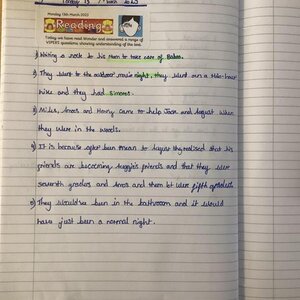 Monday 13th March 2023
Reading
Today we have read Wonder and answered a range of
VIPERS questions showing understanding of the text.
1) Writing a note to his mum to take care of Baboo.
2) They went to the outdoor movie night, they went on a nature
hike and they had Smores.
3) Miles, Amos and Henry came to help Jack and August when
they were in the woods.
4) It is because after been mean to August they realised that his
friends are becoming Auggie's friends and that they were
seventh graders and Amos and them lot were fifth graders.
5) They would've been in the bathroom and it would
have just been a normal night.